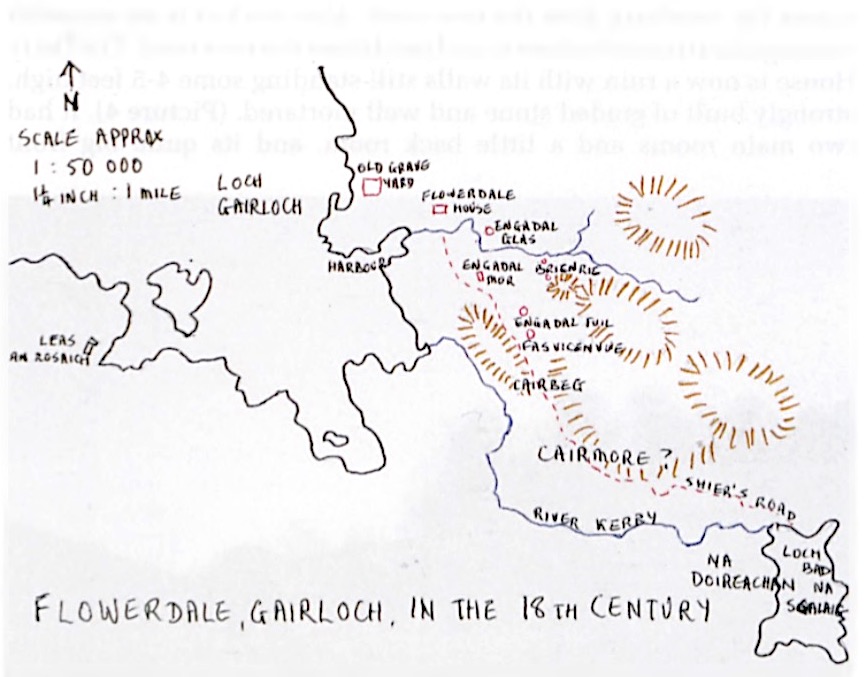 House is now a ruin with its walls still standing some 4-5 feet high,
strongly built of graded stone and well mortared. (Picture 4). It had
two main rooms and a little back room, and its
N
SCALE APPROX
1 : 50 000
1¼ INCH : 1 MILE
LOCH
GAIRLOCH
OLD GRAVE
YARD
FLOWERDALE
HOUSE
ENGADAL
GLAS
HARBOUR
ENGADAL
MOR
BRIENRIE
LEAS
AN ROSAIGH
ENGADAL TUIL
FASVICENVUE
CAIRBEG
CAIRMORE ?
SHIER'S ROAD
RIVER KERBY
NA
DOIREACHAN
LOCH
BAD
NA
SGALAIG
FLOWERDALE, GAIRLOCH, IN THE 18TH CENTURY